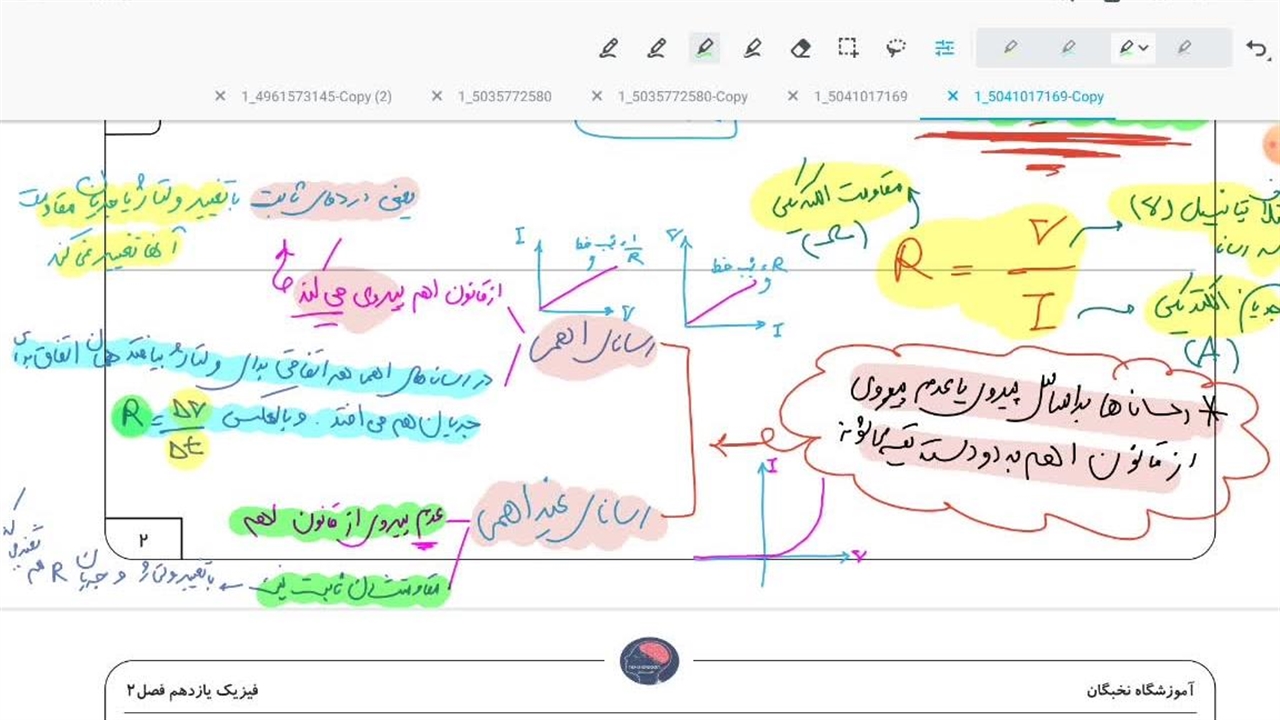 1_4961573145-Copy (2)
1_5035772580
1_5035772580-Copy
1_5041017169
1_5041017169-Copy
مقاومت الکتریکی
(Ω)
R = V / I
پتانسیل (V)
جریان الکتریکی
(A)
* رساناها براساس پیروی یا عدم پیروی
از قانون اهم به دو دسته تقسیم می‌شوند
V
شیب خط = R
I
I
شیب خط = 1/R
V
رسانای اهمی
از قانون اهم پیروی می‌کند
یعنی در دمای ثابت با تغییر ولتاژ یا جریان مقاومت
آنها تغییر نمی‌کند
در رساناهای اهمی هر اتفاقی برای ولتاژ بیافتد همان اتفاق برای
جریان هم می‌افتد . و بالعکس
R = ΔV / Δt
رسانای غیر اهمی
عدم پیروی از قانون اهم
مقاومتشان ثابت نیست
با تغییر ولتاژ و جریان R هم
I
V
۲
آموزشگاه نخبگان
فیزیک یازدهم فصل۲